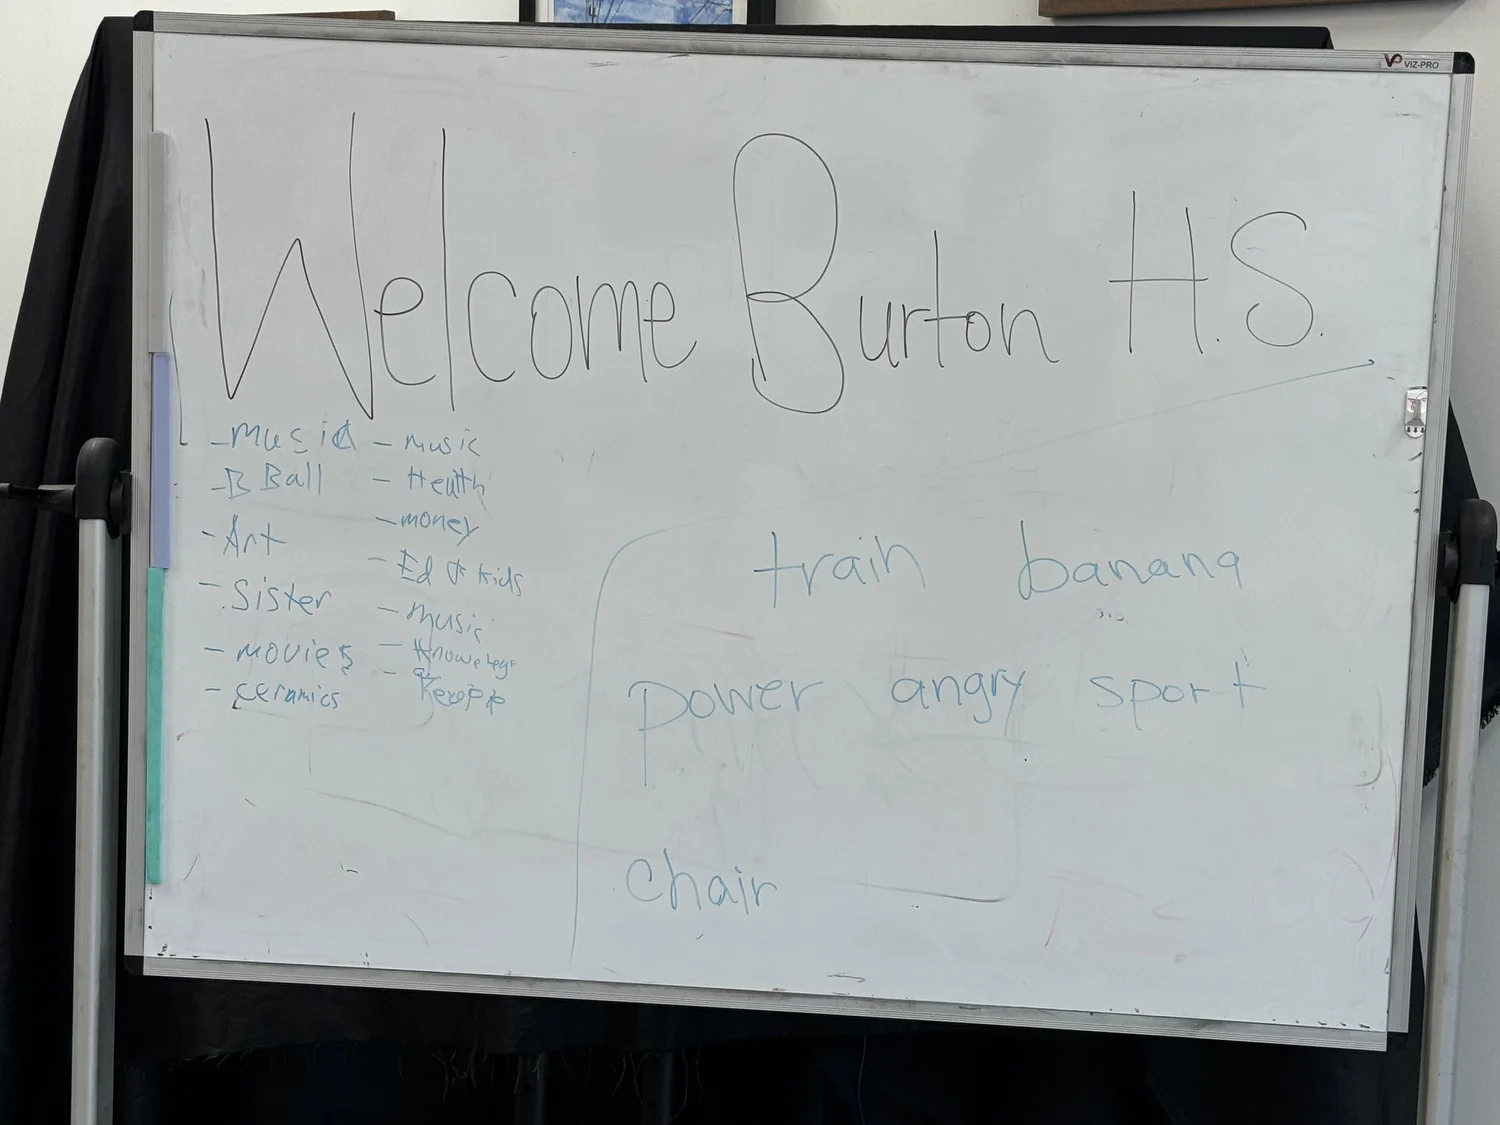 VIZ-PRO
Welcome Burton H.S.
- Music
- B Ball
- Art
- Sister
- movies
- ceramics
- music
- Health
- money
- Ed & kids
- music
-
- People
train banana
power angry sport
chair